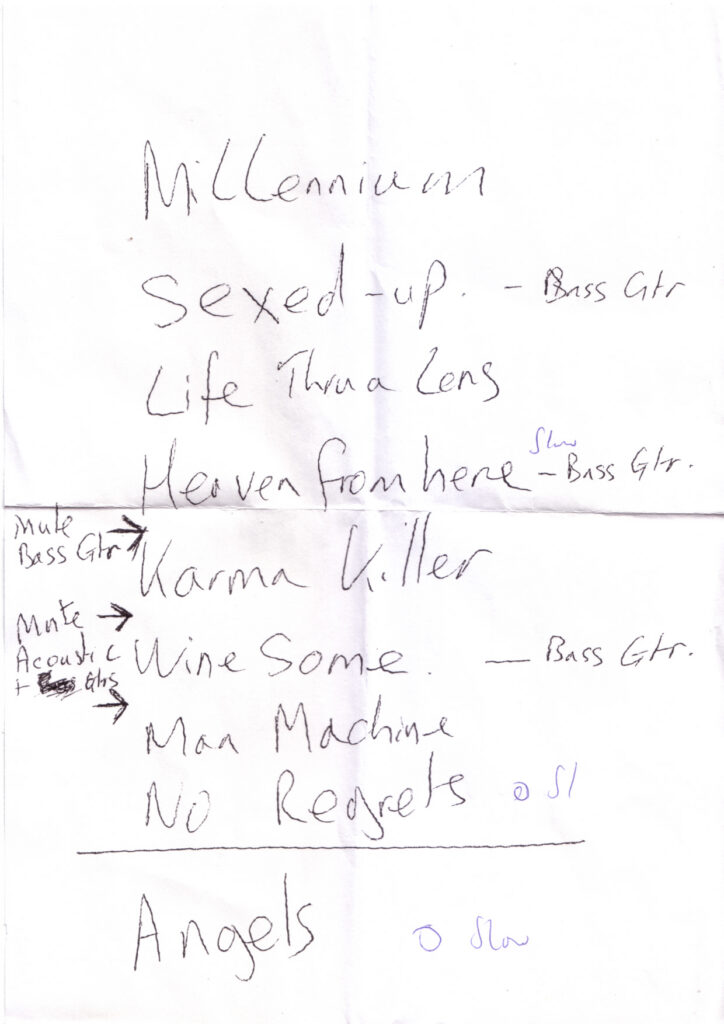 Millennium
Sexed-up. - Bass Gtr
Life Thru a Lens
Heaven from here - Bass Gtr.
Slow
Mute →
Bass Gtr
Karma Killer
Mute →
Acoustic
+ Gtrs →
Wine Some. — Bass Gtr.
Man Machine
No Regrets o Sl
Angels O Slow